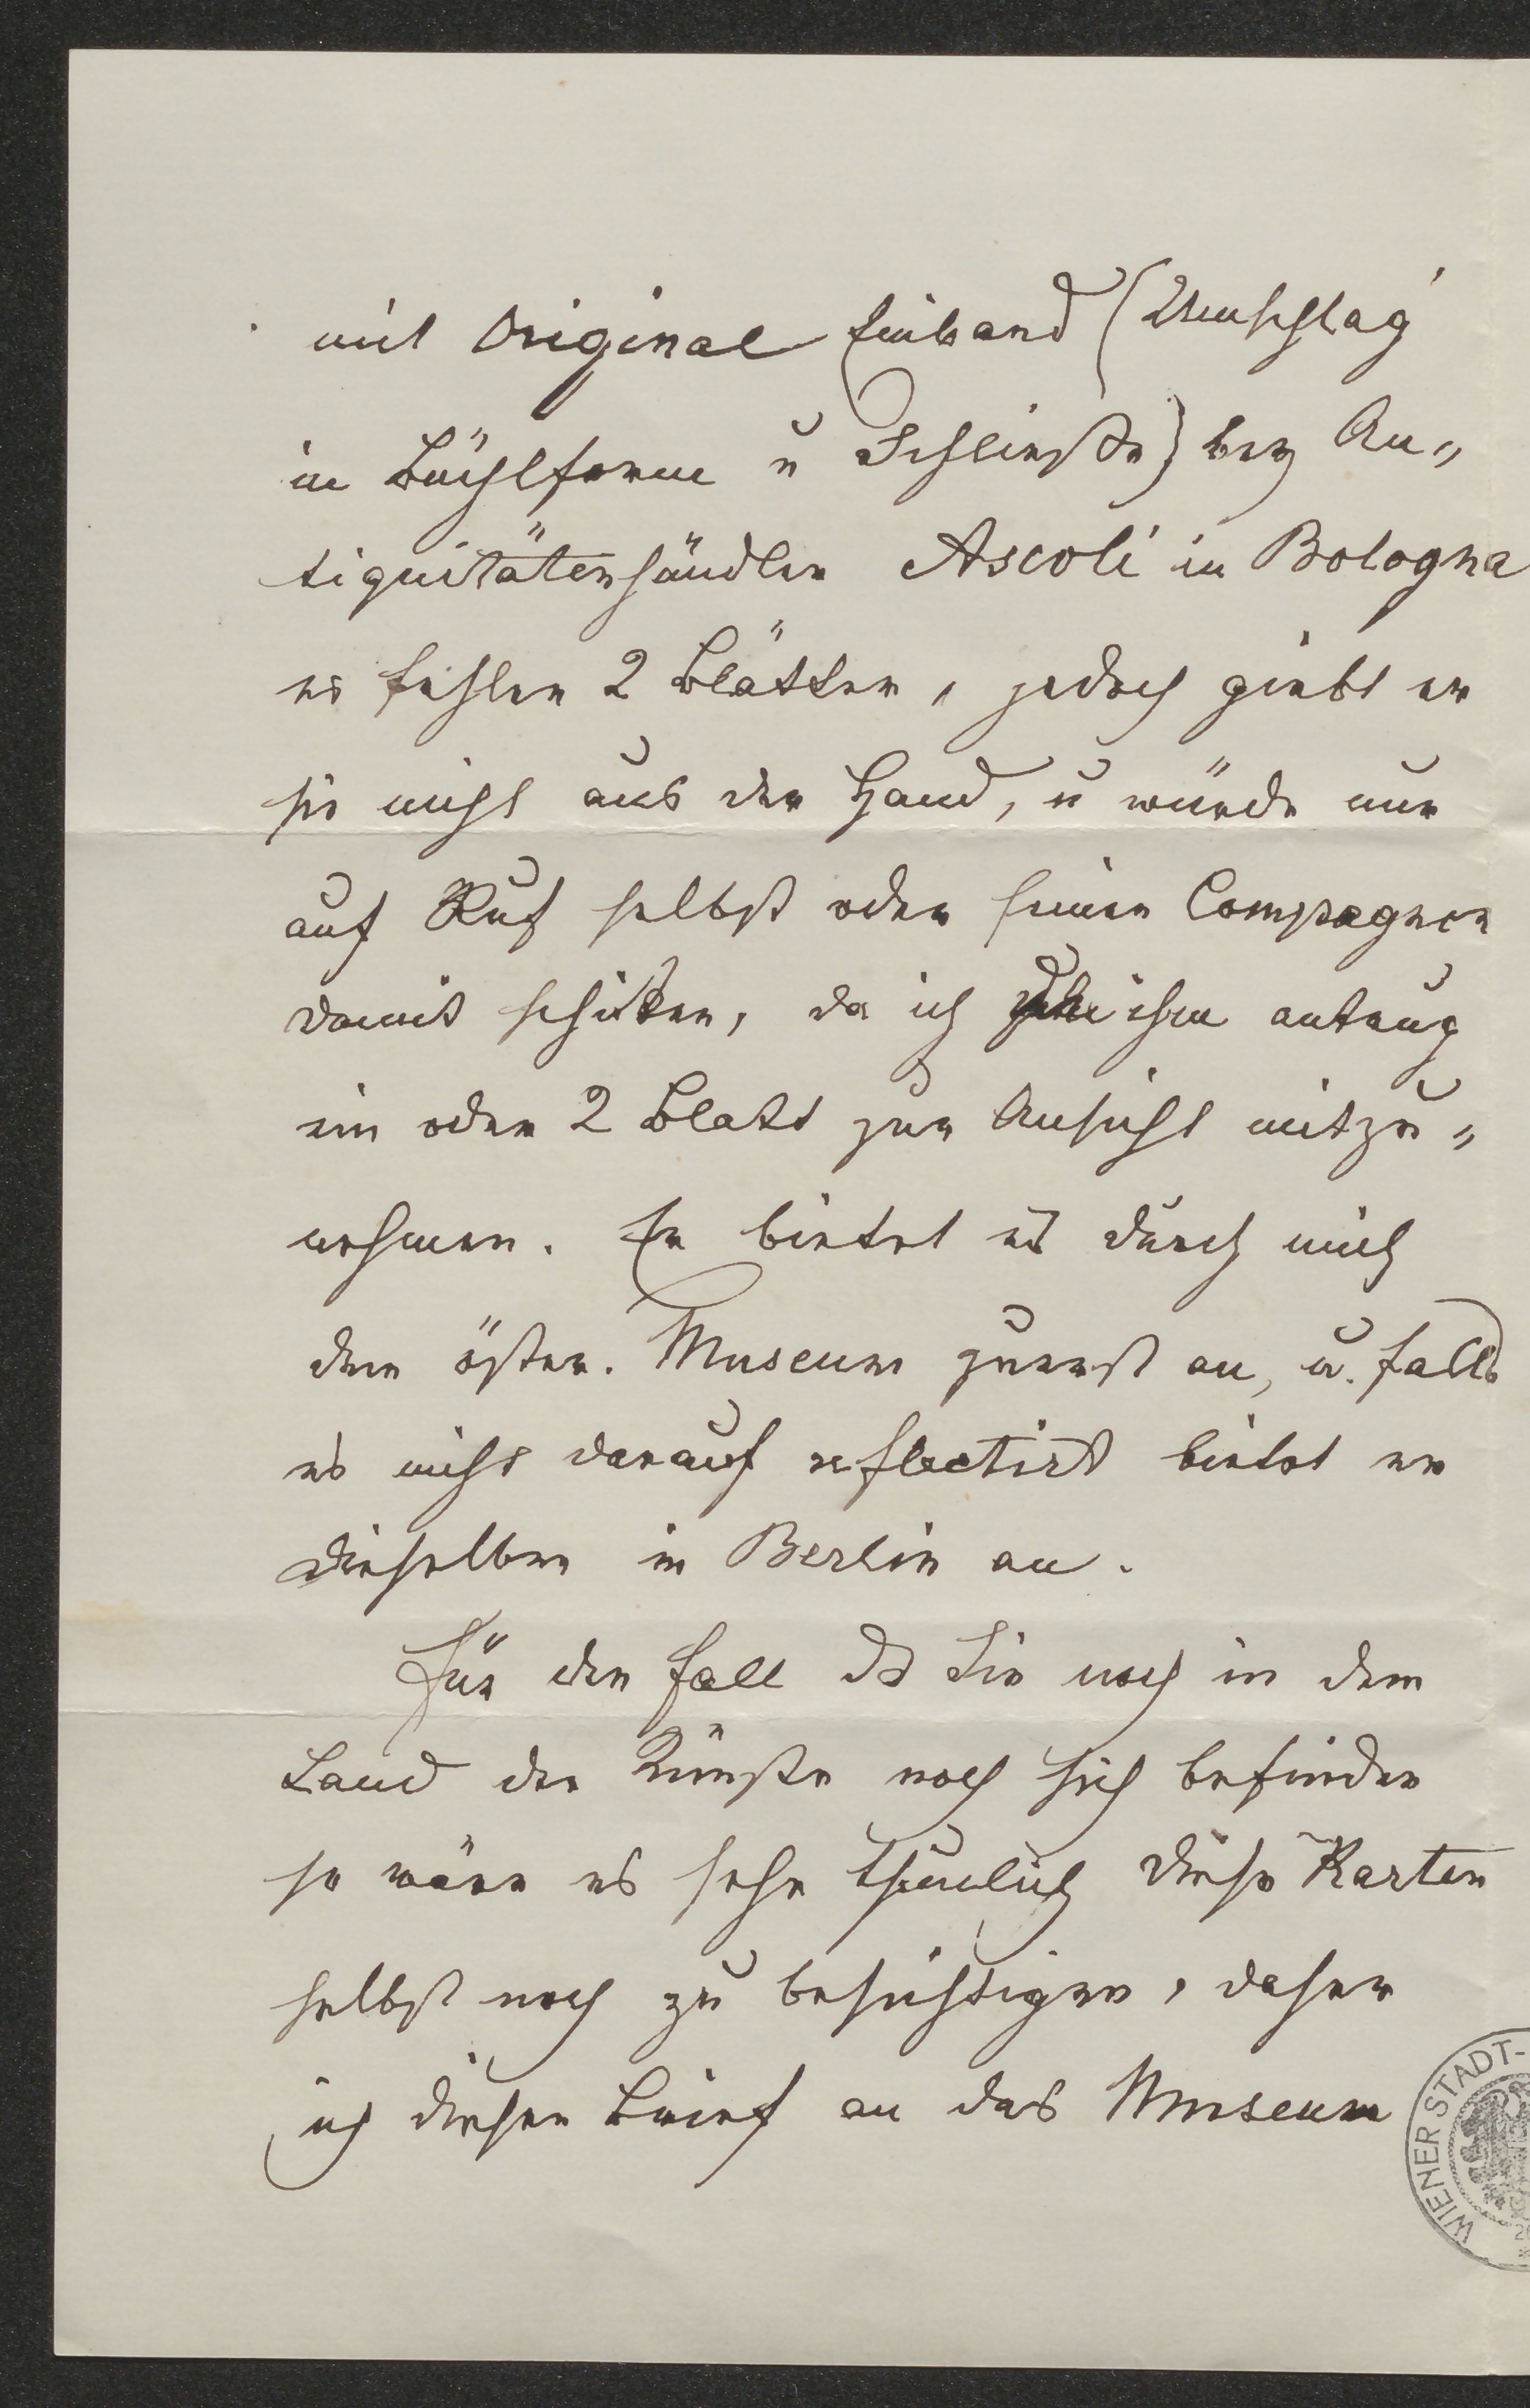 mit Original Einband (Umschlag
in Büchlform u Schließe) bey An„
tiquitätenhändler Ascoli in Bologna
es fehlen 2 Blätter, jedoch giebt er
sie nicht aus der Hand, u würde nur
auf Ruf selbst oder seinen Compagnon
damit schicken, da ich ihm antrug
ein oder 2 Blatt zur Ansicht mitzu„
nehmen. Er bietet es durch mich
dem österr. Museum zuerst an, u. falls
es nicht darauf reflectirt bietet er
dieselben in Berlin an.
Für den Fall ds Sie noch in dem
Land der Künste noch sich befinden
so wäre es sehr thunlich diese Karten
selbst noch zu besichtigen, daher
ich diesen Brief an das Museum
WIENER STADT-